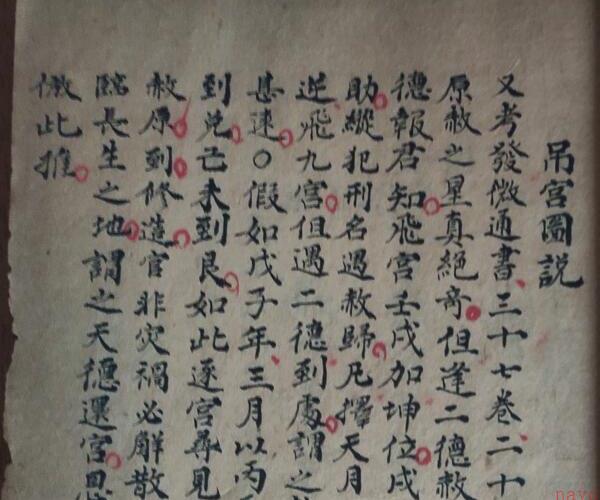 吊宮圖說
又考發微通書三十七卷二十
原赦之星真絕奇但逢二德赦
德報君知飛宮壬戌加坤位戌
助縱犯刑名遇赦歸凡擇天月
逆飛九宮但遇二德到處謂之
甚速〇假如戊子年三月以丙
到兌己未到艮如此逐宮尋見
赦原到修造官非災禍必解散
臨長生之地謂之天德還宮
倣此推